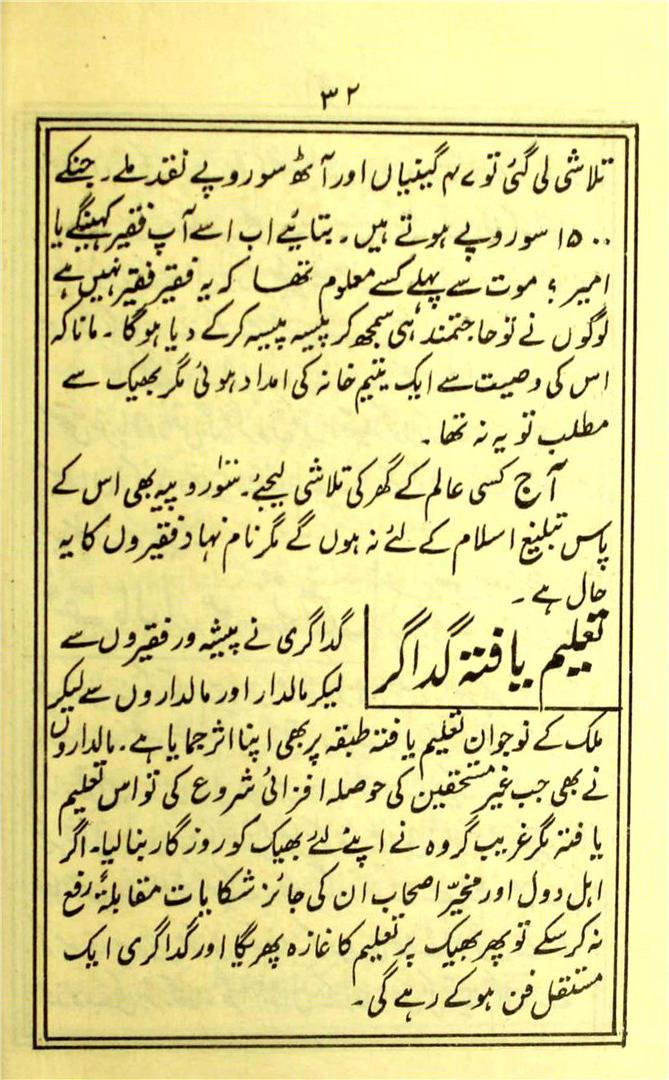 ۳۲
تلاشی لی گئی تو ۴۷ گینیاں اور آٹھ سو روپے نقد ملے۔ جنکے
۱۵۰۰ سو روپے ہوتے ہیں۔ بتائیے اب اسے آپ فقیر کہینگے یا
امیر؟ موت سے پہلے کسے معلوم تھا کہ یہ فقیر فقیر نہیں ہے
لوگوں نے تو حاجتمند ہی سمجھ کر پیسہ پیسہ کرکے دیا ہوگا۔ مانا کہ
اس کی وصیت سے ایک یتیم خانہ کی امداد ہوئی مگر بھیک سے
مطلب تو یہ نہ تھا۔
آج کسی عالم کے گھر کی تلاشی لیجئے۔ سَو روپیہ بھی اس کے
پاس تبلیغ اسلام کے لئے نہ ہوں گے مگر نام نہاد فقیروں کا یہ
حال ہے۔
تعلیم یافتہ گداگر
گداگری نے پیشہ ور فقیروں سے
لیکر مالدار اور مالداروں سے لیکر
ملک کے نوجوان تعلیم یافتہ طبقہ پر بھی اپنا اثر جمایا ہے۔ مالداروں
نے بھی جب غیر مستحقین کی حوصلہ افزائی شروع کی تو اس تعلیم
یافتہ مگر غریب گروہ نے اپنے لئے بھیک کو روزگار بنا لیا۔ اگر
اہل دول اور مخیّر اصحاب ان کی جائز شکایات مقابلۃً رفع
نہ کرسکے تو پھر بھیک پر تعلیم کا غازہ پھریگا اور گداگری ایک
مستقل فن ہو کے رہے گی۔